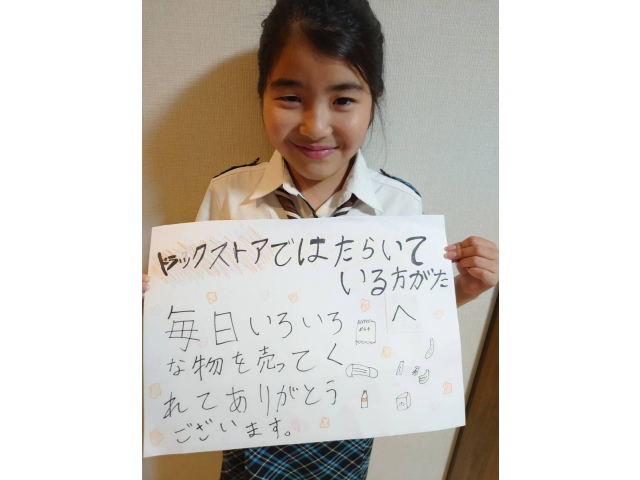 ドラックストアではたらいて
いる方がた
へ
毎日いろいろ
な物を売ってく
れてありがとう
ございます。